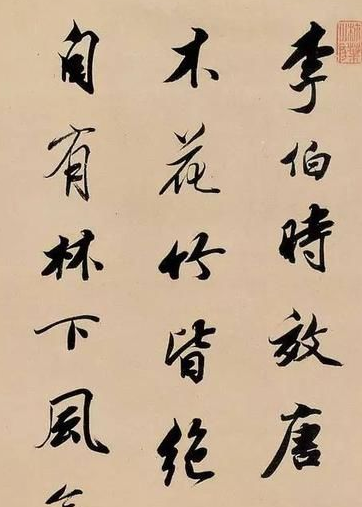 李伯時效唐
木花竹皆絶
自有林下風